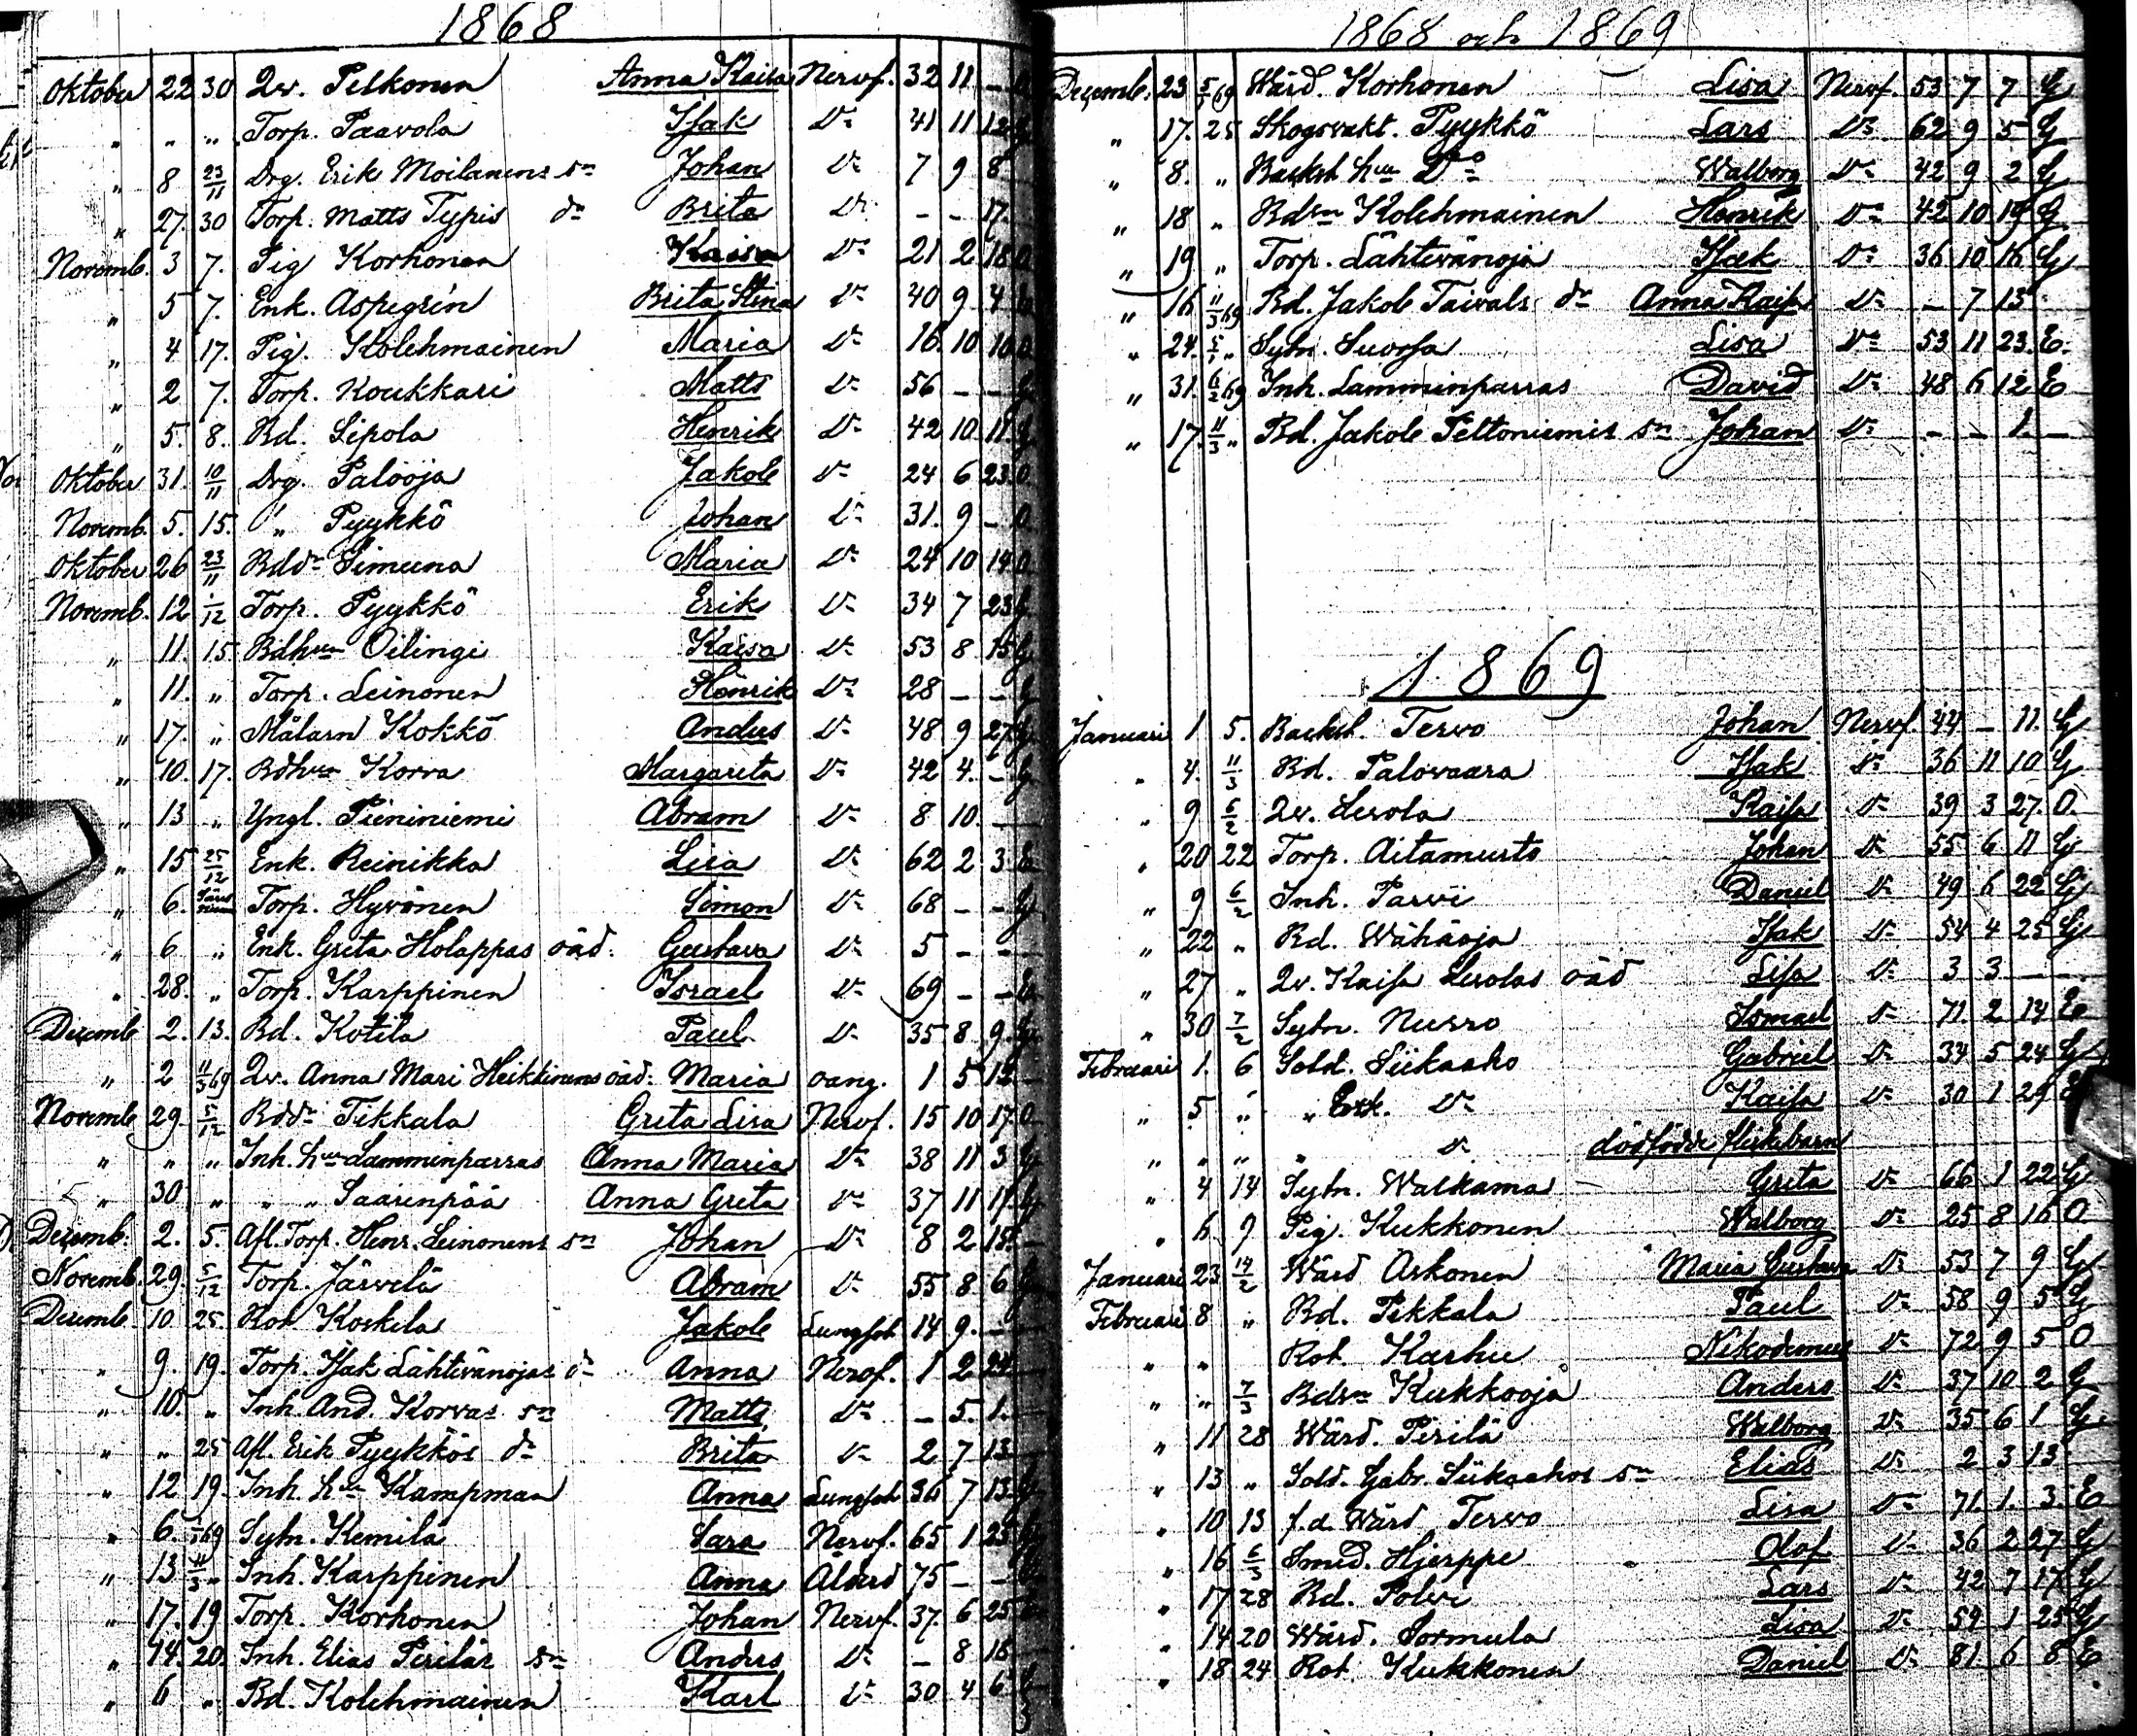 1868
Oktober 22 30 Qv. Pelkonen Anna Kaisa Nervf. 32 11 – O
„ „ „ Torp. Paavola Isak Do 41 11 12 G
„ 8 23/11 Drg. Erik Moilanens sn Johan Do 7 9 8
„ 27. 30 Torp. Matts Typis dr Brita Do – – 17.
Novemb. 3 7. Pig Korhonen Kaisa Do 21 2 18 O
„ 5 7. Enk. Aspegrén Brita Stina Do 40 9 4 E
„ 4 17. Pig. Kolehmainen Maria Do 16. 10 10 O
„ 2 7. Torp. Koukkari Matts Do 56 – – G
„ 5. 8. Bd. Sipola Henrik Do 42 10. 11. G
Oktober 31. 10/11 Drg. Palooja Jakob Do 24 6 23. O
Novemb. 5. 15. „ Pyykkö Johan Do 31. 9 – O
Oktober 26 23/11 Bddr Simuna Maria Do 24 10 14 O
Novemb. 12 1/12 Torp. Pyykkö Erik Do 34 7 23 G
„ 11. 15 Bdhu Oilingi Kaisa Do 53 8 15 G
„ 11. „ Torp. Leinonen Henrik Do 28 – – G
„ 17. „ Målarn Kokko Anders Do 48 9 27 G
„ 10. 17. Bdhu Korva Margareta Do 42 4. – G
„ 13 „ Yngl. Pieniniemi Abram Do 8 10. –
„ 15 25/12 Enk. Reinikka Lisa Do 62 2 3. E
„ 6. Torp. Hyvönen Simon Do 68 – – G
„ 6 „ Enk. Greta Holappas oäd. Gustava Do 5 – –
„ 28. „ Torp. Karppinen Israel Do 69 – – E
Decemb. 2. 13. Bd. Kotila Paul Do 35 8. 9. G
„ 2 11/3 69 Qv. Anna Mari Heikkinens oäd. Maria oang. 1 5 12 –
Novemb. 29. 5/12 Bddr Tikkala Greta Lisa Nervf. 15 10 17. O
„ „ „ Inh. hu Lamminparras Anna Maria Do 38 11 3 G
„ 30 „ „ „ Saarenpää Anna Greta Do 37 11 11. G
Decemb. 2. 5. Afl. Torp. Henr. Leinonens sn Johan Do 8 2 15. –
Novemb. 29. 5/12 Torp. Järvelä Abram Do 55 8 6 G
Decemb. 10 25. Rot. Koskela Jakob Lungsot 14 9. –
„ 9. 19. Torp. Isak Lähtevänojas dr Anna Nervf. 1 2 24
„ 10. „ Inh. And. Korvas sn Matts Do – 5. 1.
„ „ 25 Afl. Erik Pyykkös dr Brita Do 2 7 13
„ 12 19. Inh. hu Kampman Anna Lungsot 36 7 13. G
„ 6. 1/1 69 Sytn. Kemilä Sara Nervf. 65 1 25 G
„ 13 11/3 „ Inh. Karppinen Anna Ålderd 75 – –
„ 17. 19 Torp. Korhonen Johan Nervf. 37. 6 25
„ 14. 20. Inh. Elias Perilas sn Anders Do – 8 18
„ 6 „ Bd. Kolehmainen Karl Do 30 4 6 G
1868 och 1869
Decemb. 23 5/1 69 Wärd. Korhonen Lisa Nervf. 53 7 7 G
„ 17. 25 Skogsvakt. Pyykkö Lars Do 62 9 5 G
„ 8. „ Backst. hu Do Walborg Do 42 9 2 G
„ 18 „ Bdsn Kolehmainen Henrik Do 42 10 19 G
„ 19 „ Torp. Lähtevänoja Isak Do 36 10 16 G
„ 16 11/3 69 Bd. Jakob Taivals dr Anna Kaisa Do – 7 13
„ 24. 5/1 „ Sytn. Suorsa Lisa Do 53 11 23. E.
„ 31. 6/2 69 Inh. Lamminparras David Do 48 6 12 E
„ 17. 11/3 „ Bd. Jakob Peltoniemis sn Johan Do – – 1. –
1869
Januari 1 5. Backst. Tervo Johan Nervf. 44 – 11. G
„ 4. 11/3 Bd. Palovaara Isak Do 36 11 10 G
„ 9 6/2 Qv. Lerola Kaisa Do 39 3 27. O.
„ 20 22 Torp. Aitamurto Johan Do 55 6 11 G
„ 9 6/2 Inh. Parvi Daniel Do 49 6 22 G
„ 22 „ Bd. Wähäoja Isak Do 54 4 25 G
„ 27 „ Qv. Kaisa Lerolas oäd Lisa Do 3 3 –
„ 30 7/2 Sytn. Nusso Ismael Do 71. 2 14 E
Februari 1. 6 Sold. Siikaaho Gabriel Do 34 5 24 G
„ 5 „ „ Enk. Do Kaisa Do 30 1 29
„ „ „ „ Do dödfödde flickebarn
„ 4 14 Sytn. Walkama Greta Do 66 1 22 G
„ 6 9 Pig. Kukkonen Walborg Do 25 8 16 O
Januari 23 14/2 Wärd Askonen Maria Gustava Do 53 7 9 G
Februari 8 „ Bd. Pikkala Paul Do 58 9 5 G
„ „ Rot. Karhu Nikodemus Do 72 9 5 O
„ „ 7/3 Bdsn Kukkooja Anders Do 37 10 2 G
„ 11 28 Wärd. Pirilä Walborg Do 35 6 1 G
„ 13 „ Sold. Gabr. Siikaahos sn Elias Do 2 3 13
„ 10 13 f.d. Wärd Tervo Lisa Do 71. 1. 3. E
„ 16 6/3 Smed. Hjerppe Olof Do 36 2 27 G
„ 17 28 Bd. Polvi Lars Do 42 7 17 G
„ 14 20 Wärd. Sormula Lisa Do 54 1 25 G
„ 18 24 Rot Kukkonen Daniel Do 81. 6 8 E